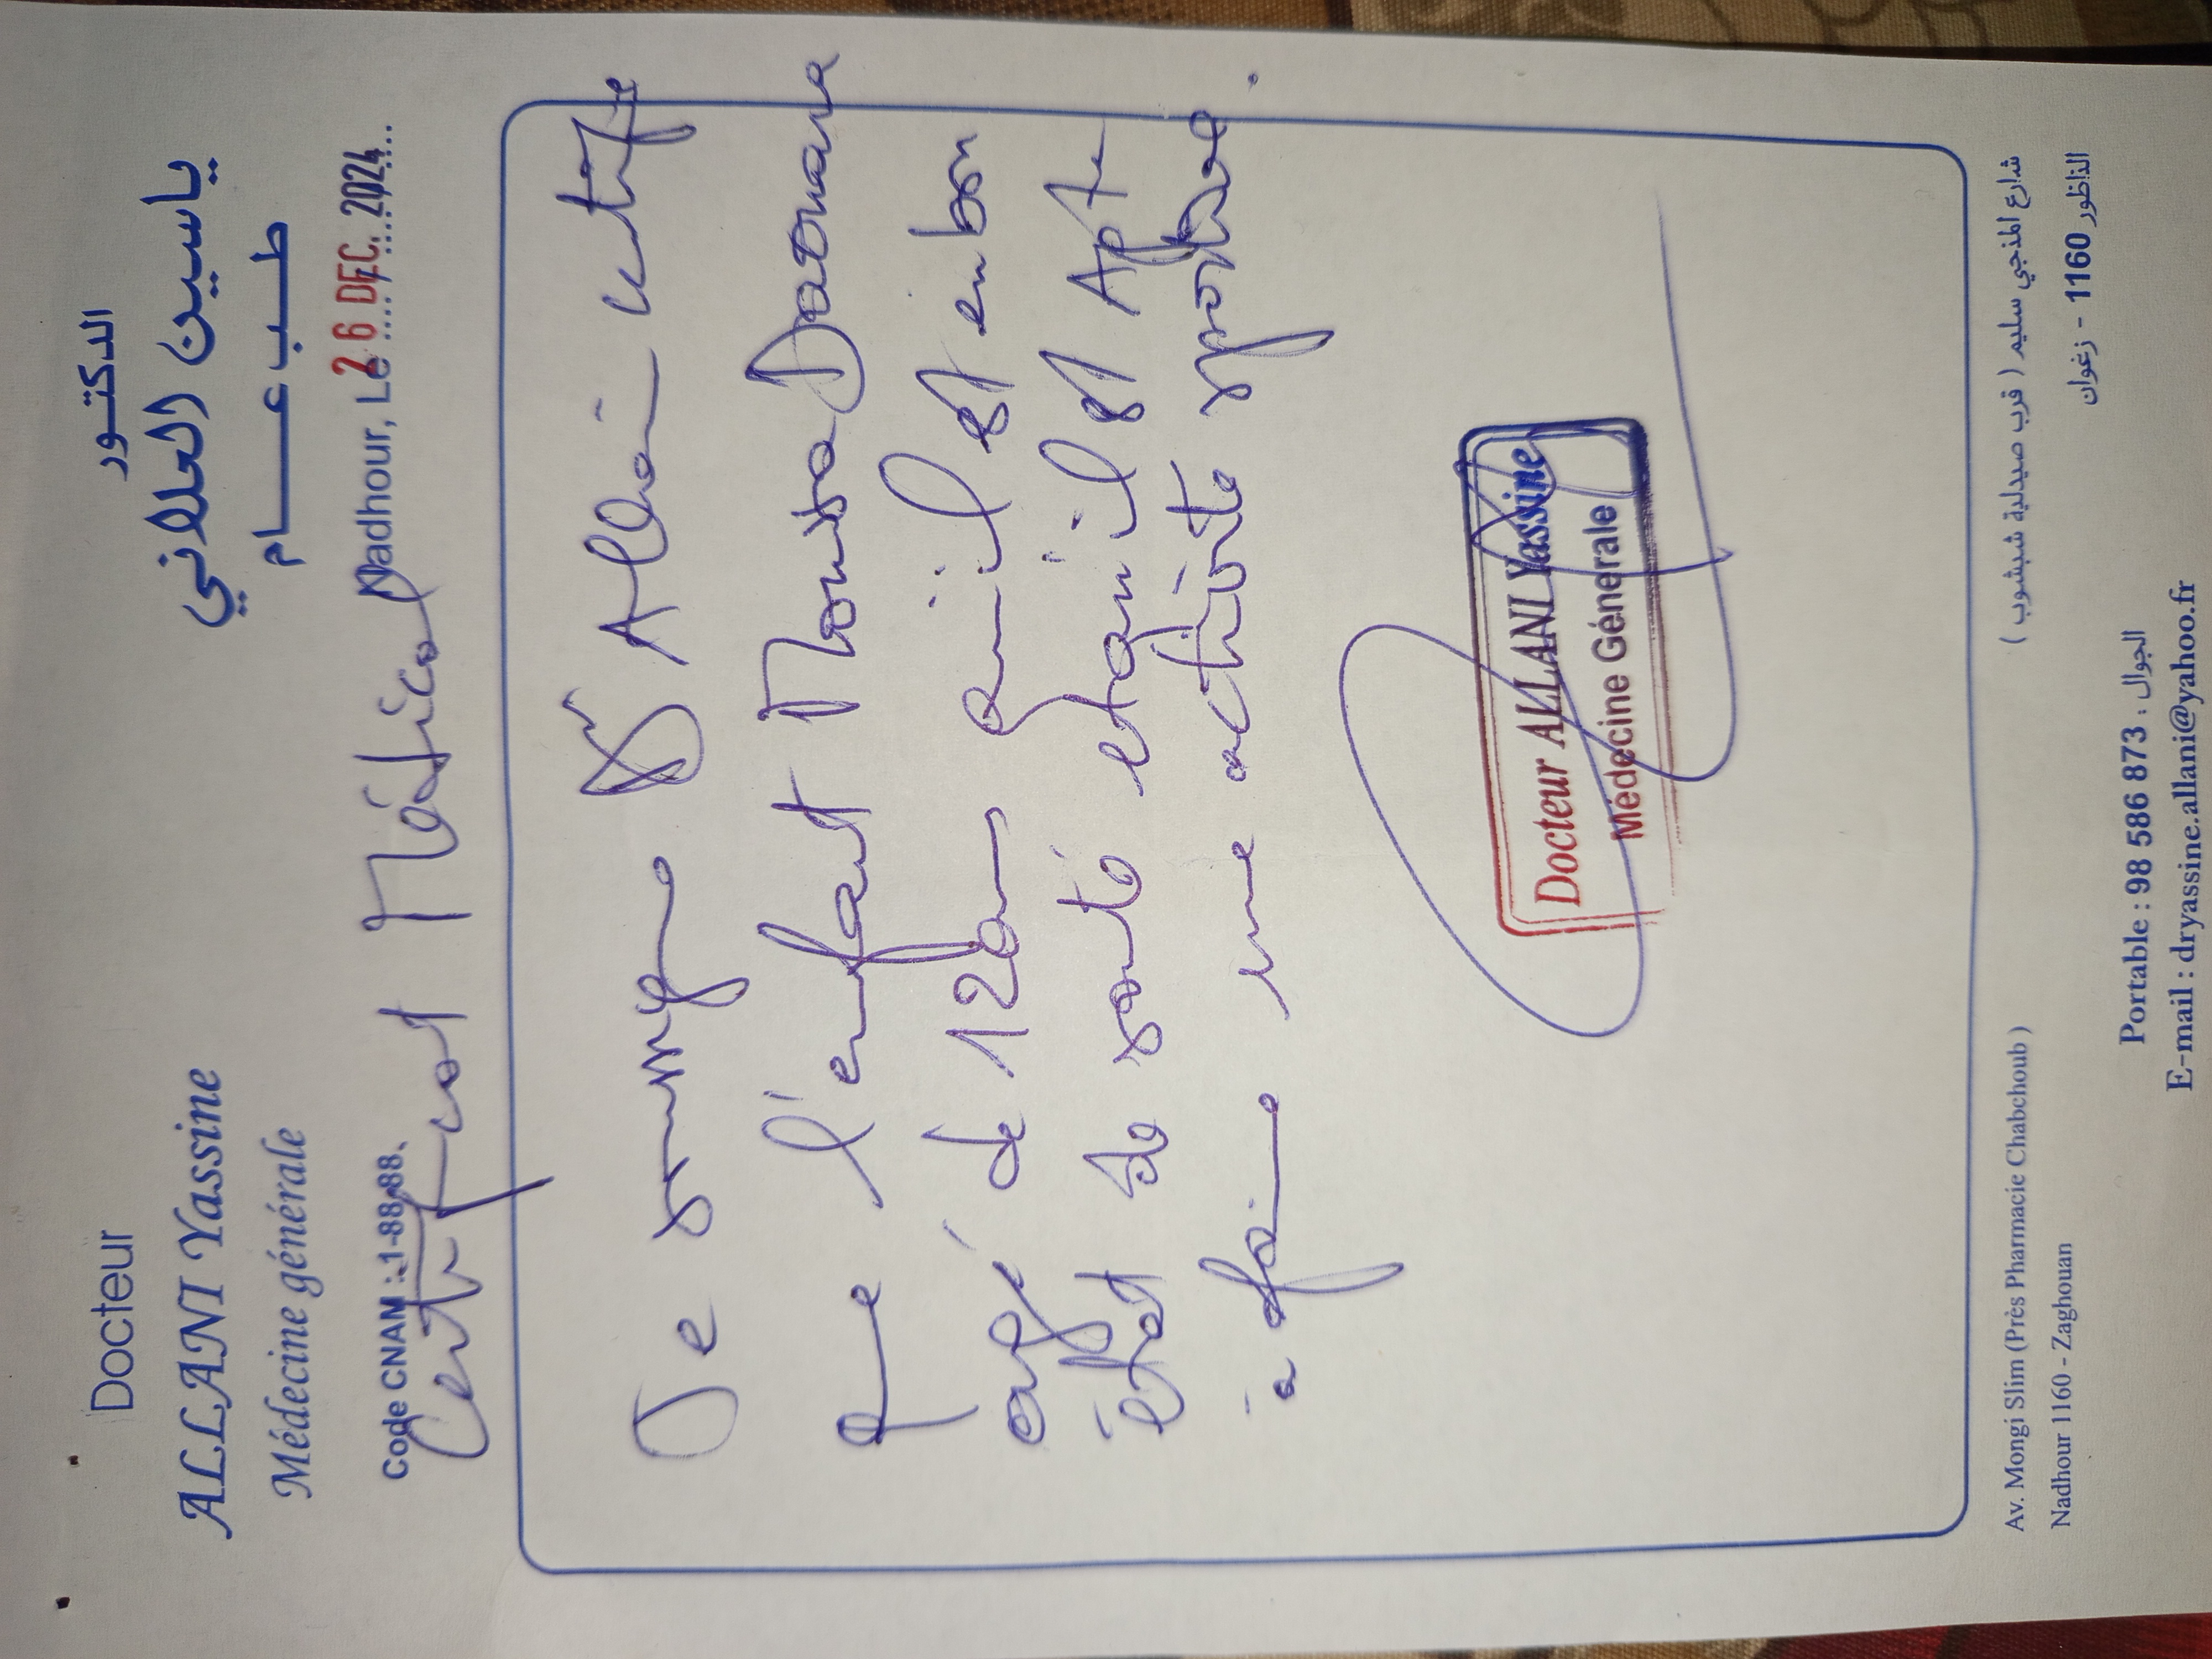 Docteur
ALLANI Yassine
Médecine générale
Code CNAM : 1-88-88.
الدكتور
ياسين العلاني
طب عام
Nadhour, Le 26 DEC. 2024
Certificat Médical
Je soussigné Dr Allani certifie
que l'enfant Moussa
agé de 12 ans qu'il est en bon
état de santé et qu'il est Apte
à faire une activité sportive.
Docteur ALLANI Yassine
Médecine Générale
Av. Mongi Slim (Près Pharmacie Chabchoub)
Nadhour 1160 - Zaghouan
شارع المنجي سليم ( قرب صيدلية شبشوب )
الناظور 1160 - زغوان
Portable : 98 586 873 : الجوال
E-mail : dryassine.allani@yahoo.fr